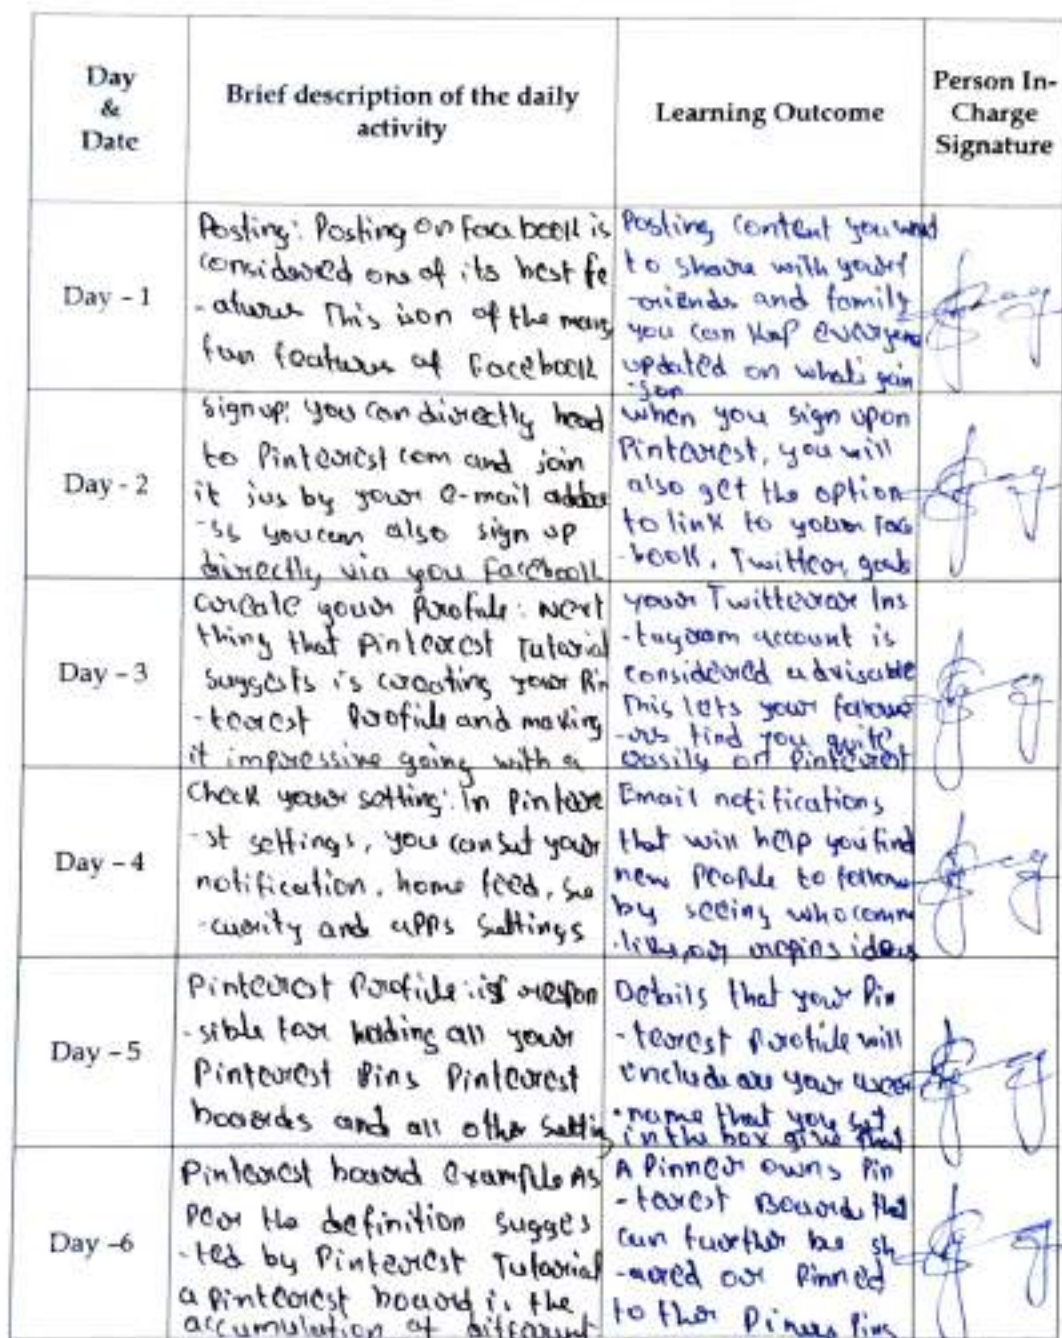 Day
&
Date
Brief description of the daily
activity
Learning Outcome
Person In-
Charge
Signature
Day - 1
Posting: Posting on Facebook is
considered one of its best fe
-atures This is on of the many
fun features of Facebook
Posting content you want
to share with your f
-riends and family
you can keep everyone
updated on what's goin
-g on
Day - 2
Sign up: you can directly head
to Pinterest com and join
it jus by your e-mail addre
-ss you can also sign up
directly via you Facebook
when you sign upon
Pinterest, you will
also get the option
to link to your Face
-book, Twitter, 
Day - 3
create your Profile: Next
thing that Pinterest Tutorial
suggests is creating your Pin
-terest Profile and making
it impressive going with a
your Twitter or Ins
-tagram account is
considered advisable
This lets your follow
-ers find you quite
easily on Pinterest
Day - 4
Check your setting: In Pintere
-st settings, you can set your
notification, home feed, se
-curity and apps settings
Email notifications
that will help you find
new people to follow
by seeing who comm
-likes, or repins ideas
Day - 5
Pinterest Profile: is respon
-sible for holding all your
Pinterest Pins Pinterest
boards and all other settin
Details that your Pin
-terest Profile will
include are your user
-name that you set
in the box give that
Day -6
Pinterest board example As
per the definition sugges
-ted by Pinterest Tutorial
a pinterest board is the
accumulation of different
A Pinner owns Pin
-terest Boards that
can further be sh
-ared or Pinned
to ther Piners Pins